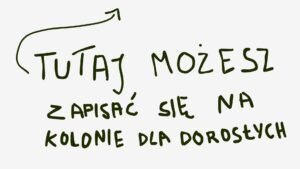 TUTAJ MOŻESZ
ZAPISAĆ SIĘ NA
KOLONIE DLA DOROSŁYCH